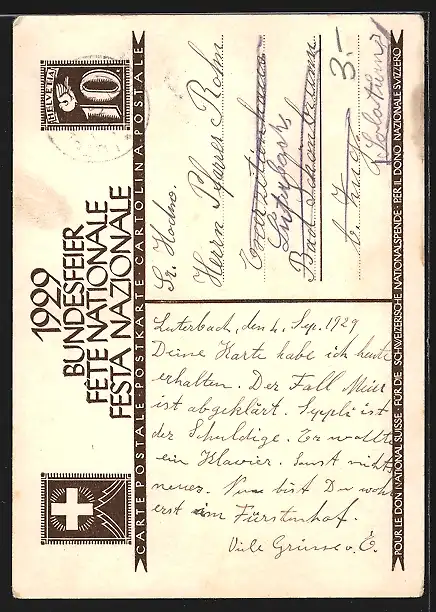 HELVETIA
10
1929
BUNDESFEIER
FÊTE NATIONALE
FESTA NAZIONALE
CARTE POSTALE · POSTKARTE · CARTOLINA POSTALE
Sr. Hochw.
Herrn Pfarrer Bohm
Bad Schönbrunn
b. Zug
3.-
Luterbach, den 4. Sep. 1929
Deine Karte habe ich heute
erhalten. Der Fall Meier
ist abgeklärt. Seppli ist
der Schuldige. Er wollte
ein Klavier. Sonst nichts
neues. Nun bist Du wohl
erst im Fürstenhof.
Viele Grüsse v. E.
POUR LE DON NATIONAL SUISSE · FÜR DIE SCHWEIZERISCHE NATIONALSPENDE · PER IL DONO NAZIONALE SVIZZERO